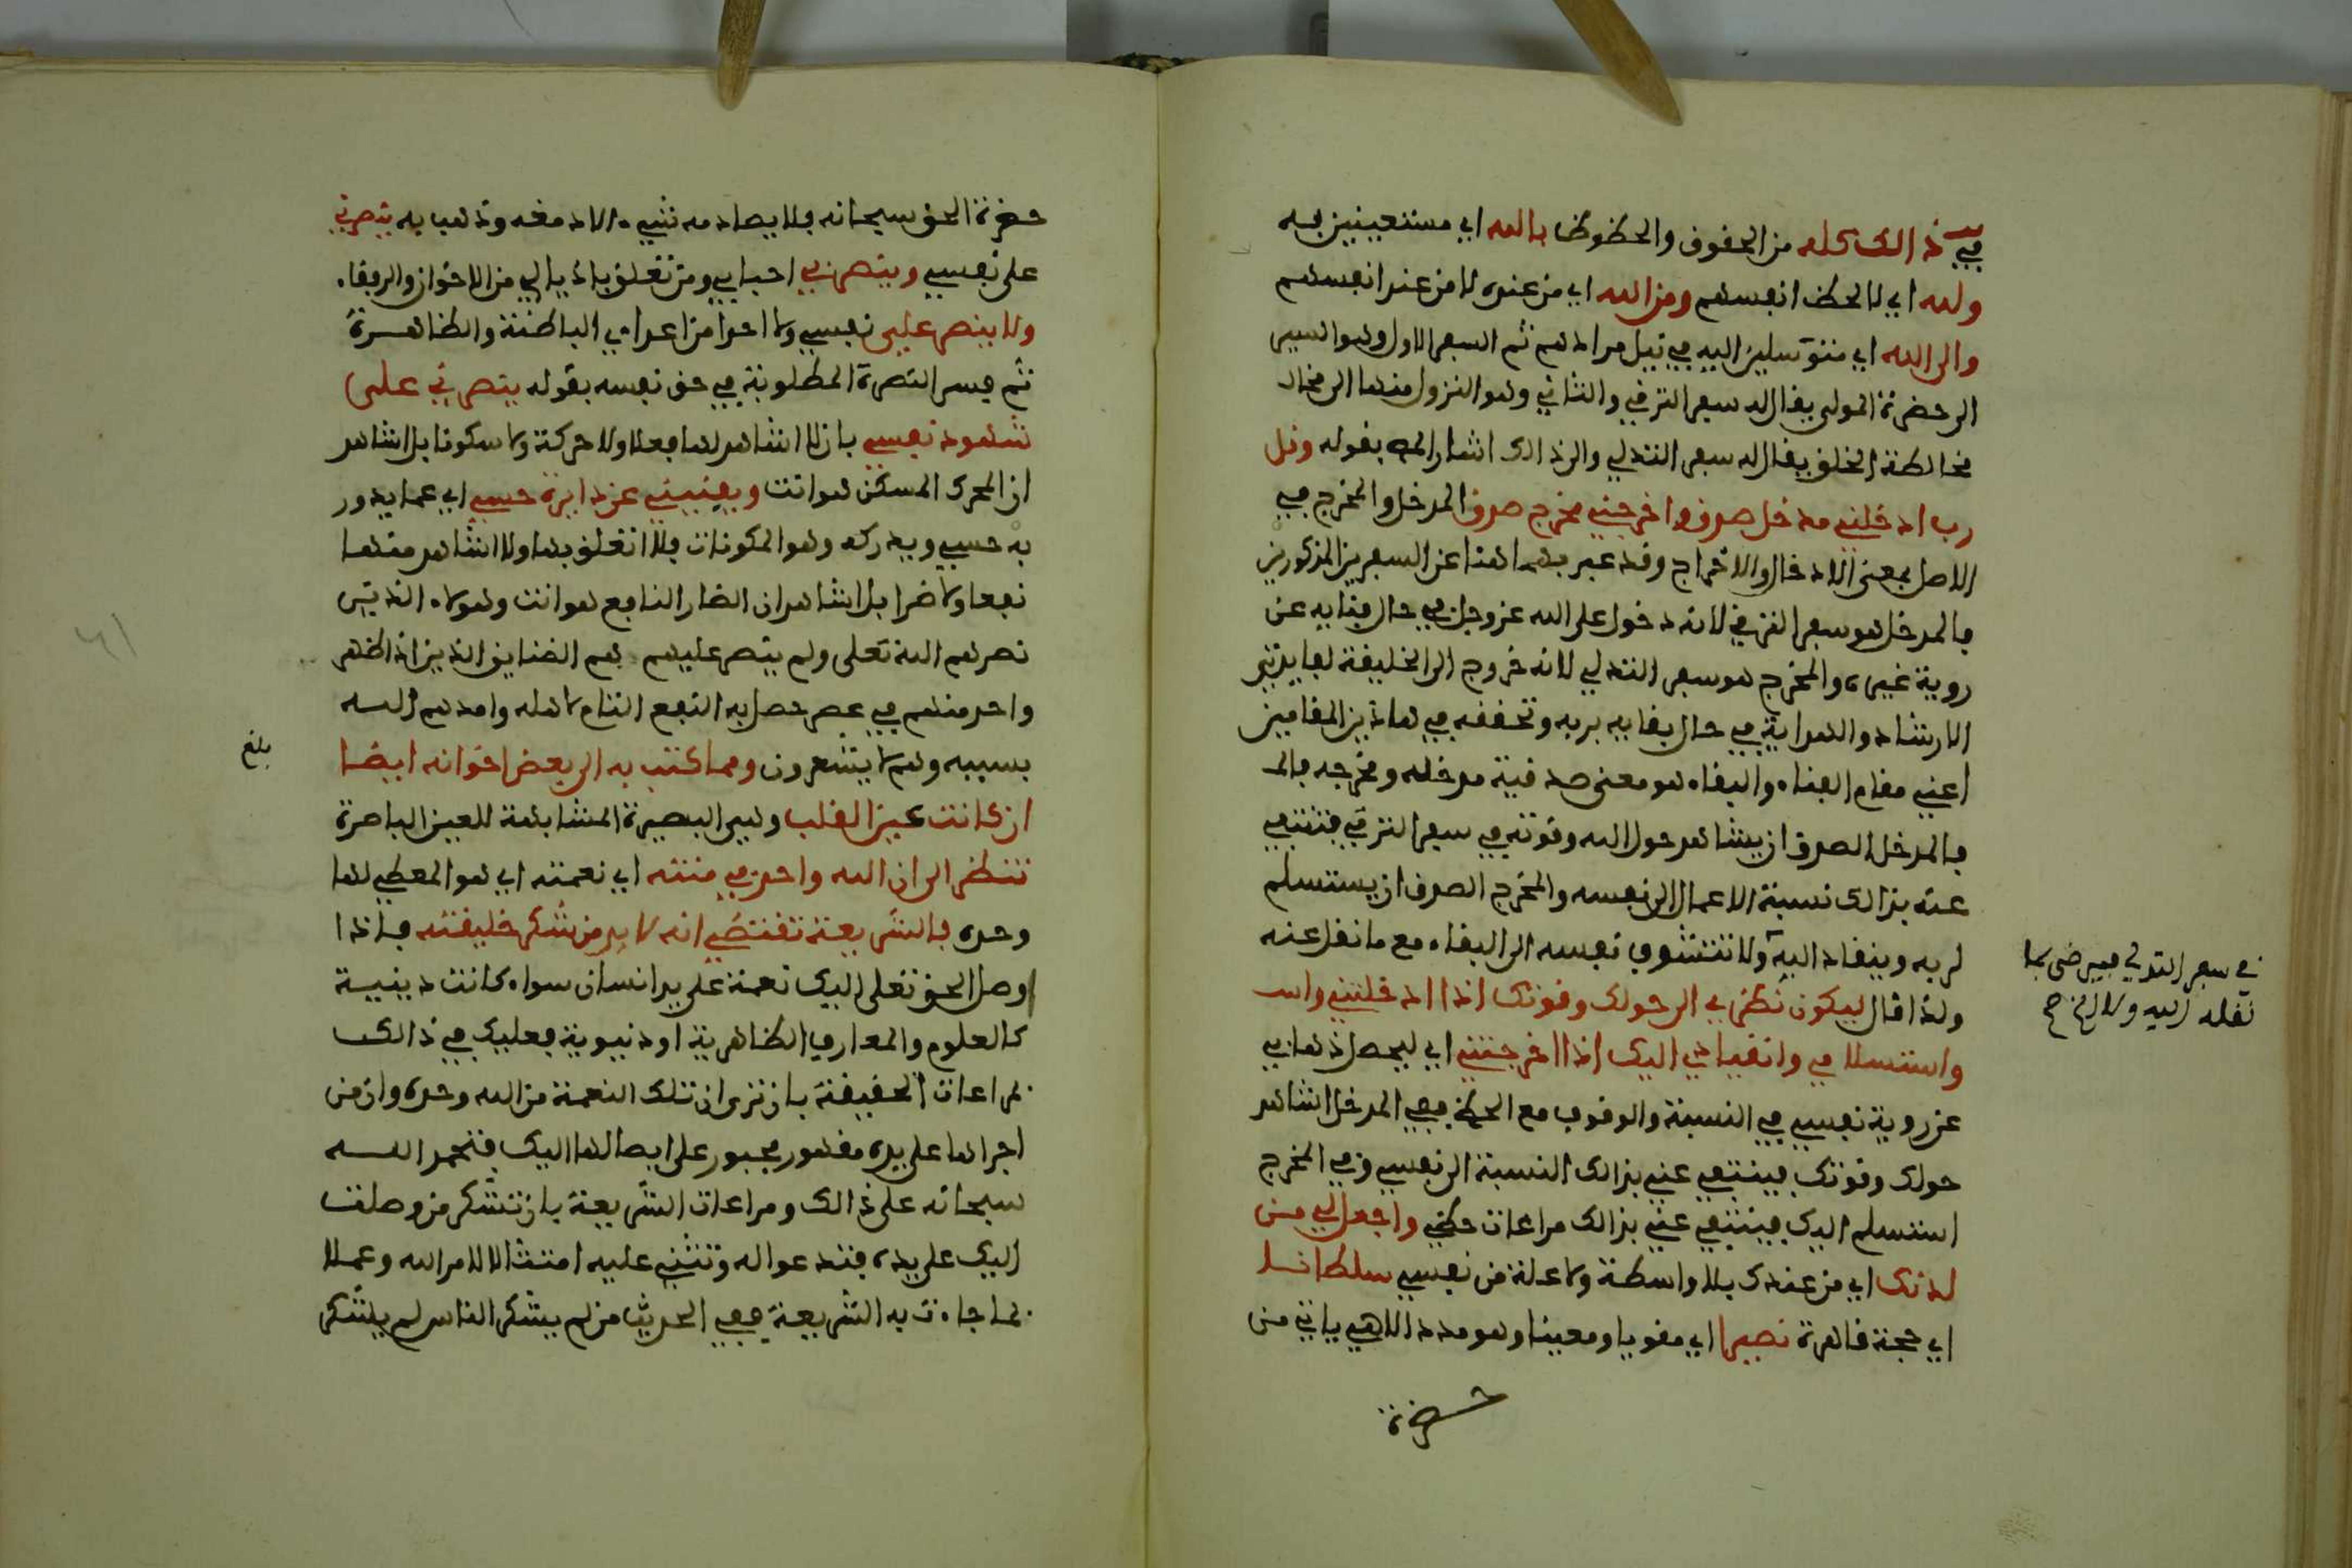 في ذالك كله من الحقوق والحظوظ بالله اي مستعينين به
ولله اي لا لحظ انفسهم ومن الله اي من عنده لا من عند انفسهم
والى الله اي متوسلين اليه في نيل مرادهم ثم السفر الاول وهو السير
الى حضرة المولى يقال له سفر الترقي والثاني وهو النزول منها الى
مخالطة الخلق يقال له سفر التدلي والى ذالك اشار اليه بقوله وقل
رب ادخلني مدخل صدق واخرجني مخرج صدق المدخل والمخرج في
الاصل بمعنى الادخال والاخراج وقد عبر بهما هنا عن السفرين المذكورين
فالمدخل هو سفر الترقي لانه دخول على الله عز وجل في حال فنايه عن
روية غيره والمخرج هو سفر التدلي لانه خروج الى الخليفة لفايدتي
الارشاد والهداية في حال بقايه بربه وتحققه في هاذين المقامين
اعني مقام الفناء والبقاء هو معنى صدقية مدخله ومخرجه
فالمدخل الصدق ان يشاهد حول الله وقوته في سفر الترقي فتنتفي
عنه بذالك نسبة الاعمال الى نفسه والمخرج الصدق ان يستسلم
لربه وينقاد اليه ولا تتشوف نفسه الى البقاء مع ما نقل عنه
في سفر التدلي فيرضى بما
نقله اليه ولا
ولذا قال ليكون نظري الى حولك وقوتك اذا ادخلتني
واستسلامي وانقيادي اليك اذا اخرجتني اي ليحصل ذهابي
عن روية نفسي في النسبة والوقوف مع الحظ ففي المدخل اشاهد
حولك وقوتك فينتفي عني بذالك النسبة الى نفسي وفي المخرج
استسلم اليك فينتفي عني بذالك مراعات حظي واجعل لي من
لدنك اي من عندك بلا واسطة ولا علة من نفسي سلطانا
اي حجة قاهرة نصيرا اي مقويا ومعينا وهو مدد الاهي ياتي من
حضرة
حضرة الحق سبحانه فلا يصادمه شيء الا دمغه وذهب به ينصرني
على نفسي وينصر بي احبابي ومن تعلق باذيالي من الاخوان والرفقاء
ولا ينصر علي نفسي ولا احدا من اعداءي الباطنة والظاهرة
ثم فسر النصرة المطلوبة في حق نفسه بقوله ينصرني على
شهود نفسي بان لا اشاهد لها فعلا ولا حركة ولا سكونا بل اشاهد
ان المحرك المسكن هو انت ويفنيني عن دايرة حسي اي عما يدور
به حسي ويدركه وهو المكونات فلا اتعلق بها ولا اشاهد منها
نفعا ولا ضرا بل اشاهد ان الضار النافع هو انت وهولاء الذين
نصرهم الله تعلى ولم ينصر عليهم هم الضناين الذين اذا ظهر
واحد منهم في عصر حصل به النفع التام لاهله وامدهم الله
بسببه وهم لا يشعرون ومما كتب به الى بعض اخوانه ايضا
بلغ
ان كانت عين القلب وهي البصيرة المشابهة للعين الباصرة
تنظر الى ان الله واحد في منته اي نعمته اي هو المعطي لها
وحده فالشريعة تقتضي انه لا بد من شكر خليقته فاذا
اوصل الحق تعلى اليك نعمة على يد انسان سواء كانت دينية
كالعلوم والمعارف الظاهرية او دنيوية فعليك في ذالك
مراعات الحقيقة بان ترى ان تلك النعمة من الله وحده وان من
اجراها على يده مقهور مجبور على ايصالها اليك فتحمد الله
سبحانه على ذالك ومراعات الشريعة بان تشكر من وصلت
اليك على يده فتدعو له وتثني عليه امتثالا لامر الله وعملا
بما جاءت به الشريعة ففي الحديث من لم يشكر الناس لم يشكر